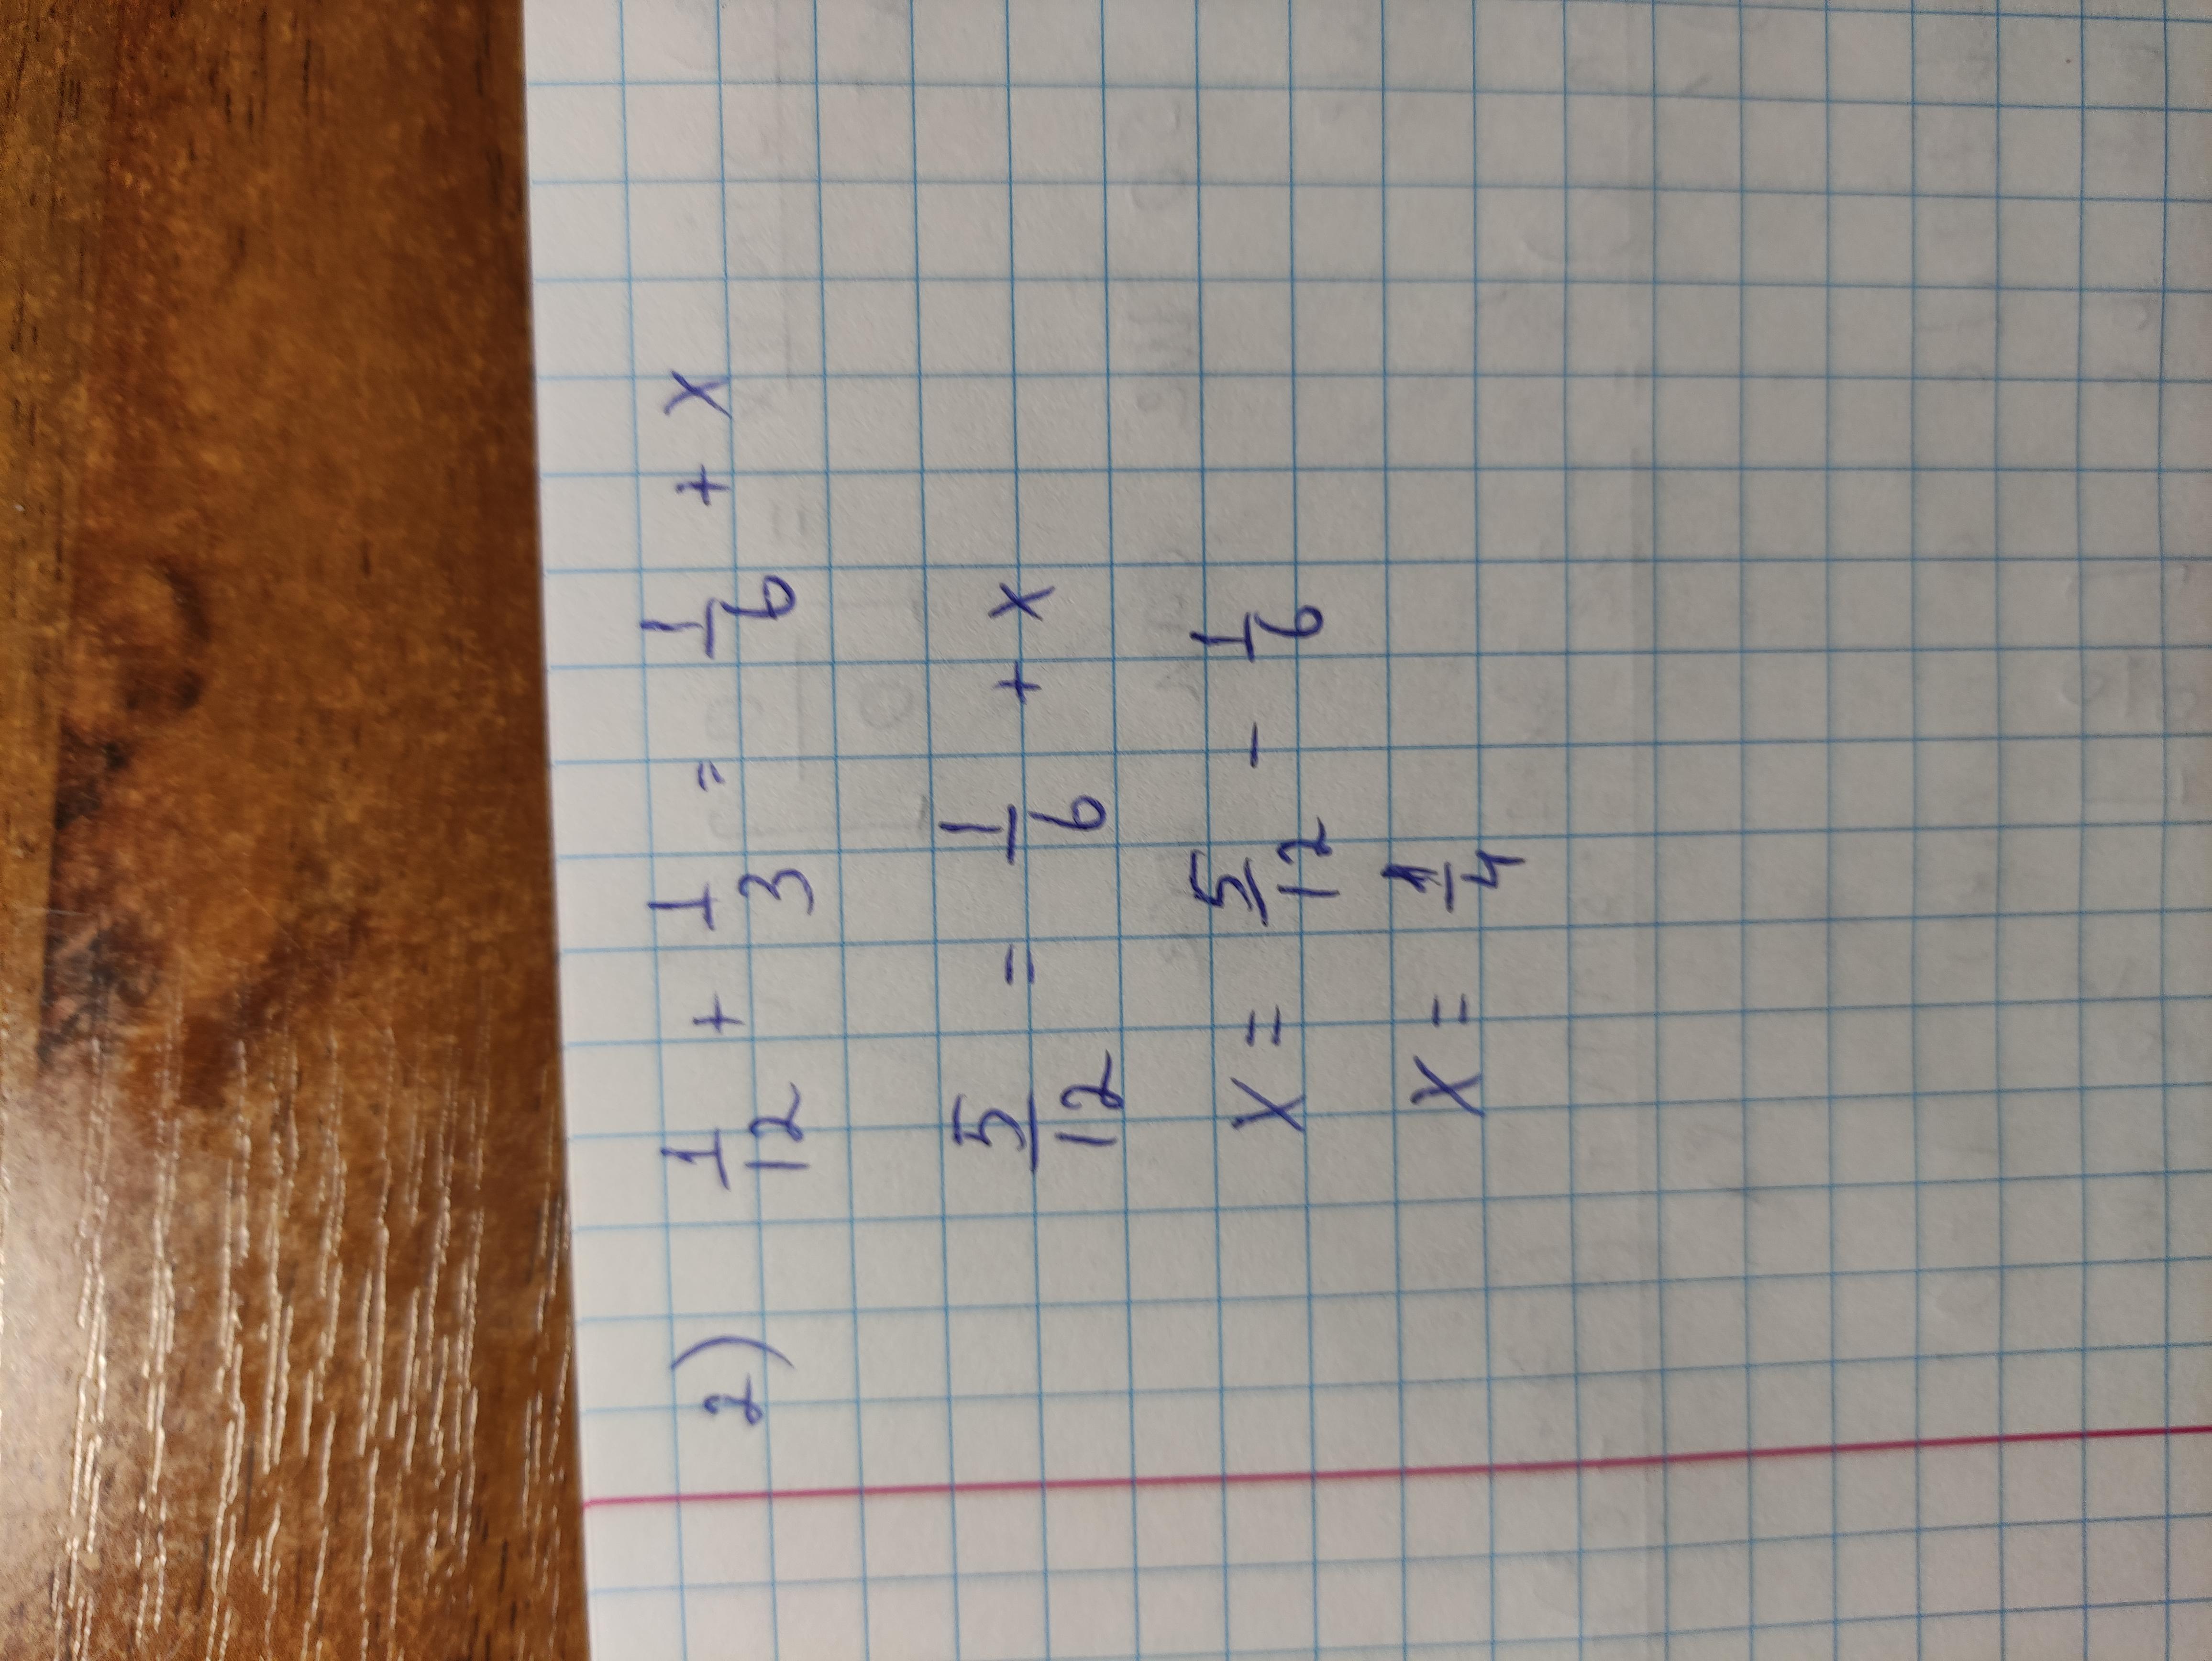 2) 1/12 + 1/3 = 1/6 + x
5/12 = 1/6 + x
x = 5/12 - 1/6
x = 1/4